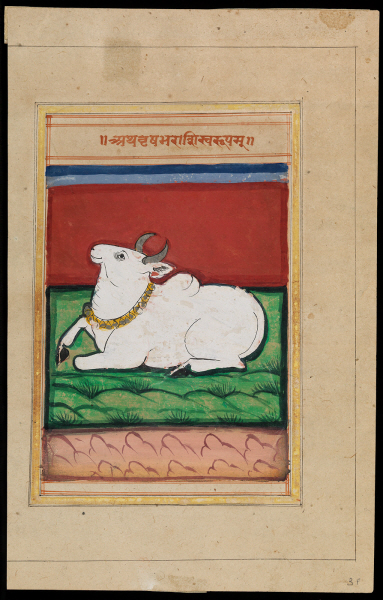 ॥अथवृषभराशिस्वरूपम्॥
३१